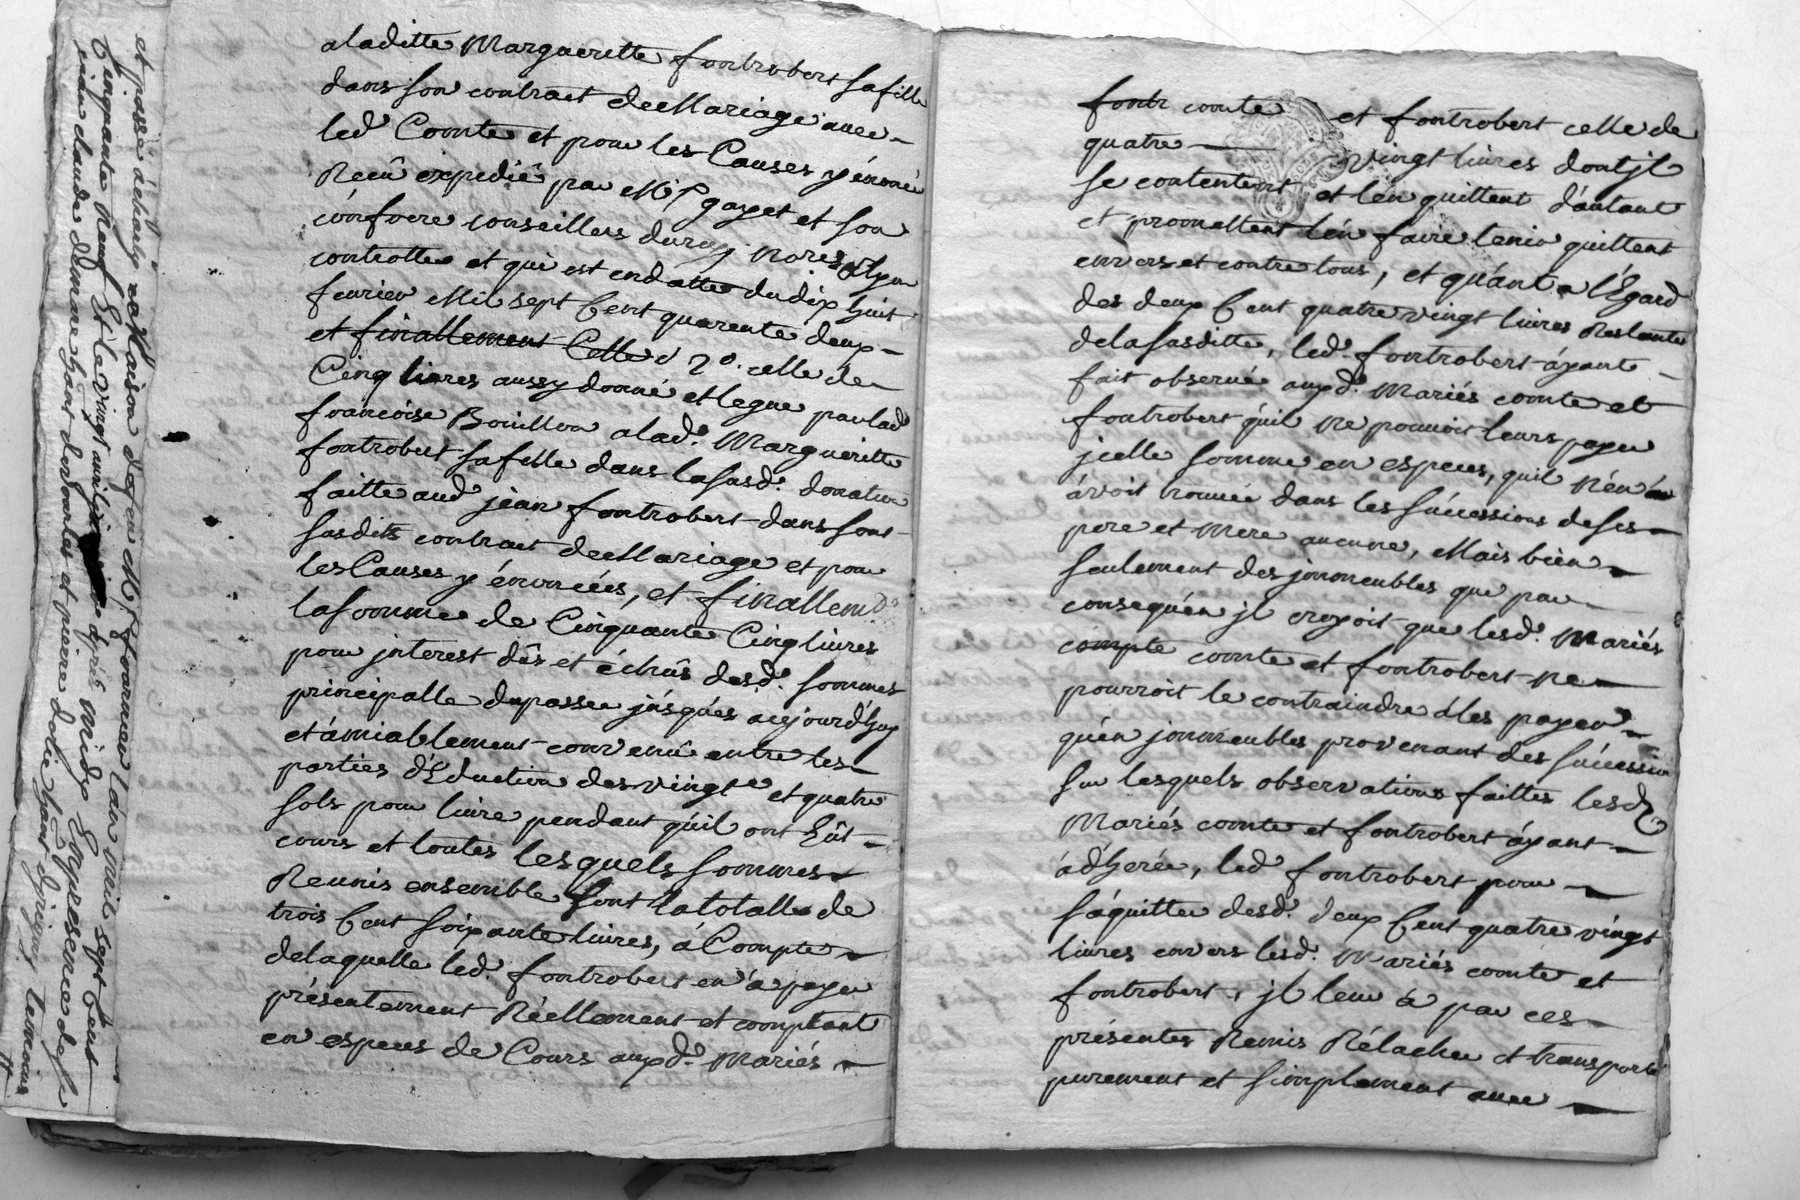 et passé à charly maison de feu Mr fournier l'an mil sept Cent
Cinquante Neuf Et le vingt avril après midy En presence de Sr
jean claude Dumare hant dordourles et pierre dolie hant dirigny temoins
aladitte Marguerette fontrobert sa fille
dans son contract de Mariage avec
led Comte et pour les Causes y énoncé
Receu expedié par Me gayet et son
cónfrere conseillers du roy Nores a lyon
controlle et qui est endatte du dix huit
feurier Mil sept Cent quarente deux
et finallement Celle d 2º. celle de
Cinq livres aussy donné et legué par lad
francóise Bouillon alad.e Margueritte
fontrobert sa fille dans la susd.e donation
faitte aud jean fontrobert dans sont
susdits contract de Mariage et pour
les Causes y énoncées, et finallemt
la somme de Cinquante Cinq livres
pour jnterest dûs et échûs desd.es sommes
principalle du passee júsqués aujourd'huy
et ámiablement convenû entre les
parties d'Eduction des vingte et quatre
sols pour livre pendant qúil ont Eût
cours et toutes lesquels sommes
Reunis ensemble sont la totalle de
trois Cent soixante livres, á Compte
de laquelle led. fontrobert en á payer
présentement Réellement et comptant
en especes de Cours auxd.s Mariés
fontr comte et fontrobert celle de
quatre vingt livres dont jl
se contentent et l'én quittent d'áutant
et promettent l'én faire tenir quittent
envers et contre tous, et qúánt a l'Egard
des deux Cent quatre vingt livres Restante
de la susditte, led. fontrobert áyant
fait observée auxd. Mariés comte et
fontrobert qúil Ne pouvoit leurs payer
jcelle somme en especes, quil N'én
ávoit trouvée dans les súccessions de ses
pere et Mere aucune, Mais bién
seulement des jmmeubles que par
conseqúén jl croyoit que lesd. Mariés
compte comte et fontrobert ne
pourroit le contraindre á les payer
qúén jmmeubles provenant des súccession
sur lesquels observations faittes lesd
Mariés comte et fontrobert áyant
ád'herée, led fontrobert pour
s'áquitter desd. deux Cent quatre vingt
livres envers lesd. Mariés comte et
fontrobert, jl leur á par ces
présentes Remis Rélachee et transporté
purement et simplement avec